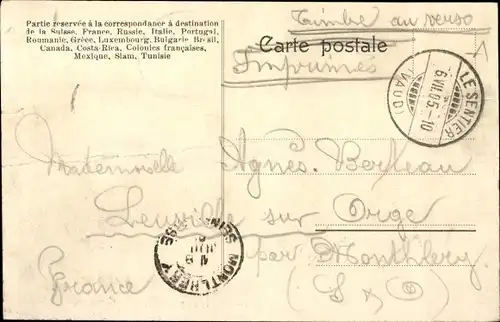 Partie réservée à la correspondance à destination
de la Suisse, France, Russie, Italie, Portugal,
Roumanie, Grèce, Luxembourg, Bulgarie Brésil,
Canada, Costa-Rica, Colonies françaises,
Mexique, Siam, Tunisie
Timbre au verso
Carte postale
Imprimés
LE SENTIER
6.VII.05.-10
(VAUD)
Mademoiselle Agnès Berteau
Leuville sur Orge
par Montlhéry
France (S & O)
MONTLHERY
SEINE